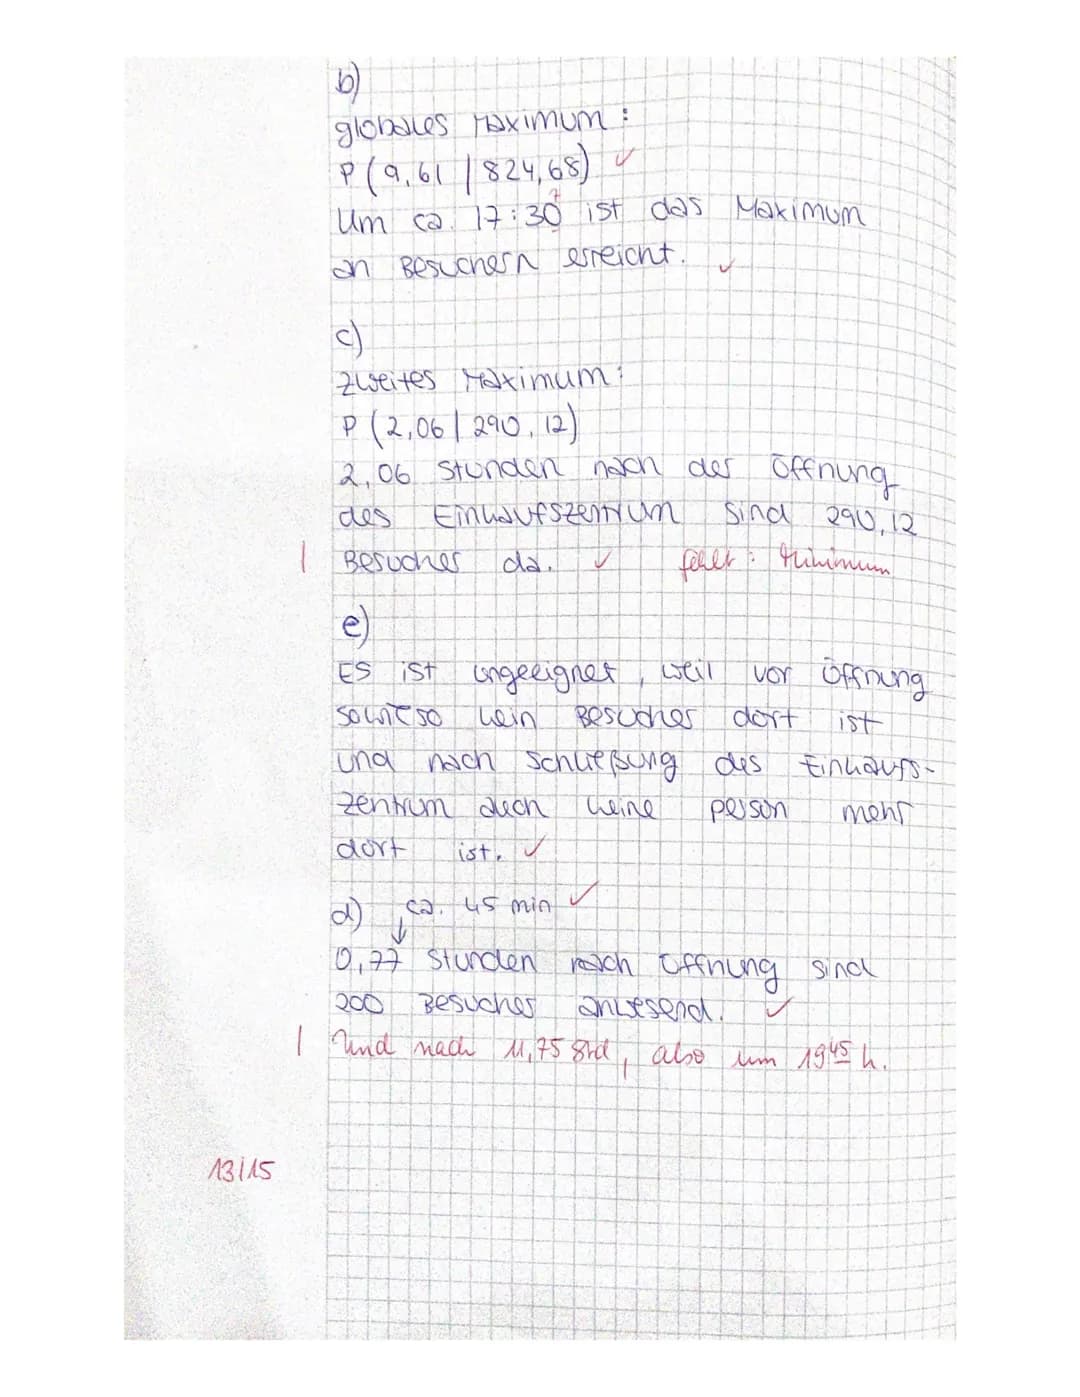 b)
globales Maximum :
P (9,61 | 824,68) ✓
Um ca. 17:30 ist das Maximum
an Besuchern erreicht. ✓
c)
zweites Maximum:
P (2,06 | 290,12)
2,06 Stunden nach der Öffnung
des Einkaufszentrum sind 290,12
| Besucher da. ✓ fehlt : Minimum
e)
Es ist ungeeignet, weil vor Öffnung
sowieso kein Besucher dort ist
und nach Schließung des Einkaufs-
zentrum auch keine person mehr
dort ist. ✓
d) ca. 45 min ✓
0,77 Stunden nach Öffnung sind
200 Besucher anwesend. ✓
| Und nach 11,75 Std, also um 19 45 h.
13/15